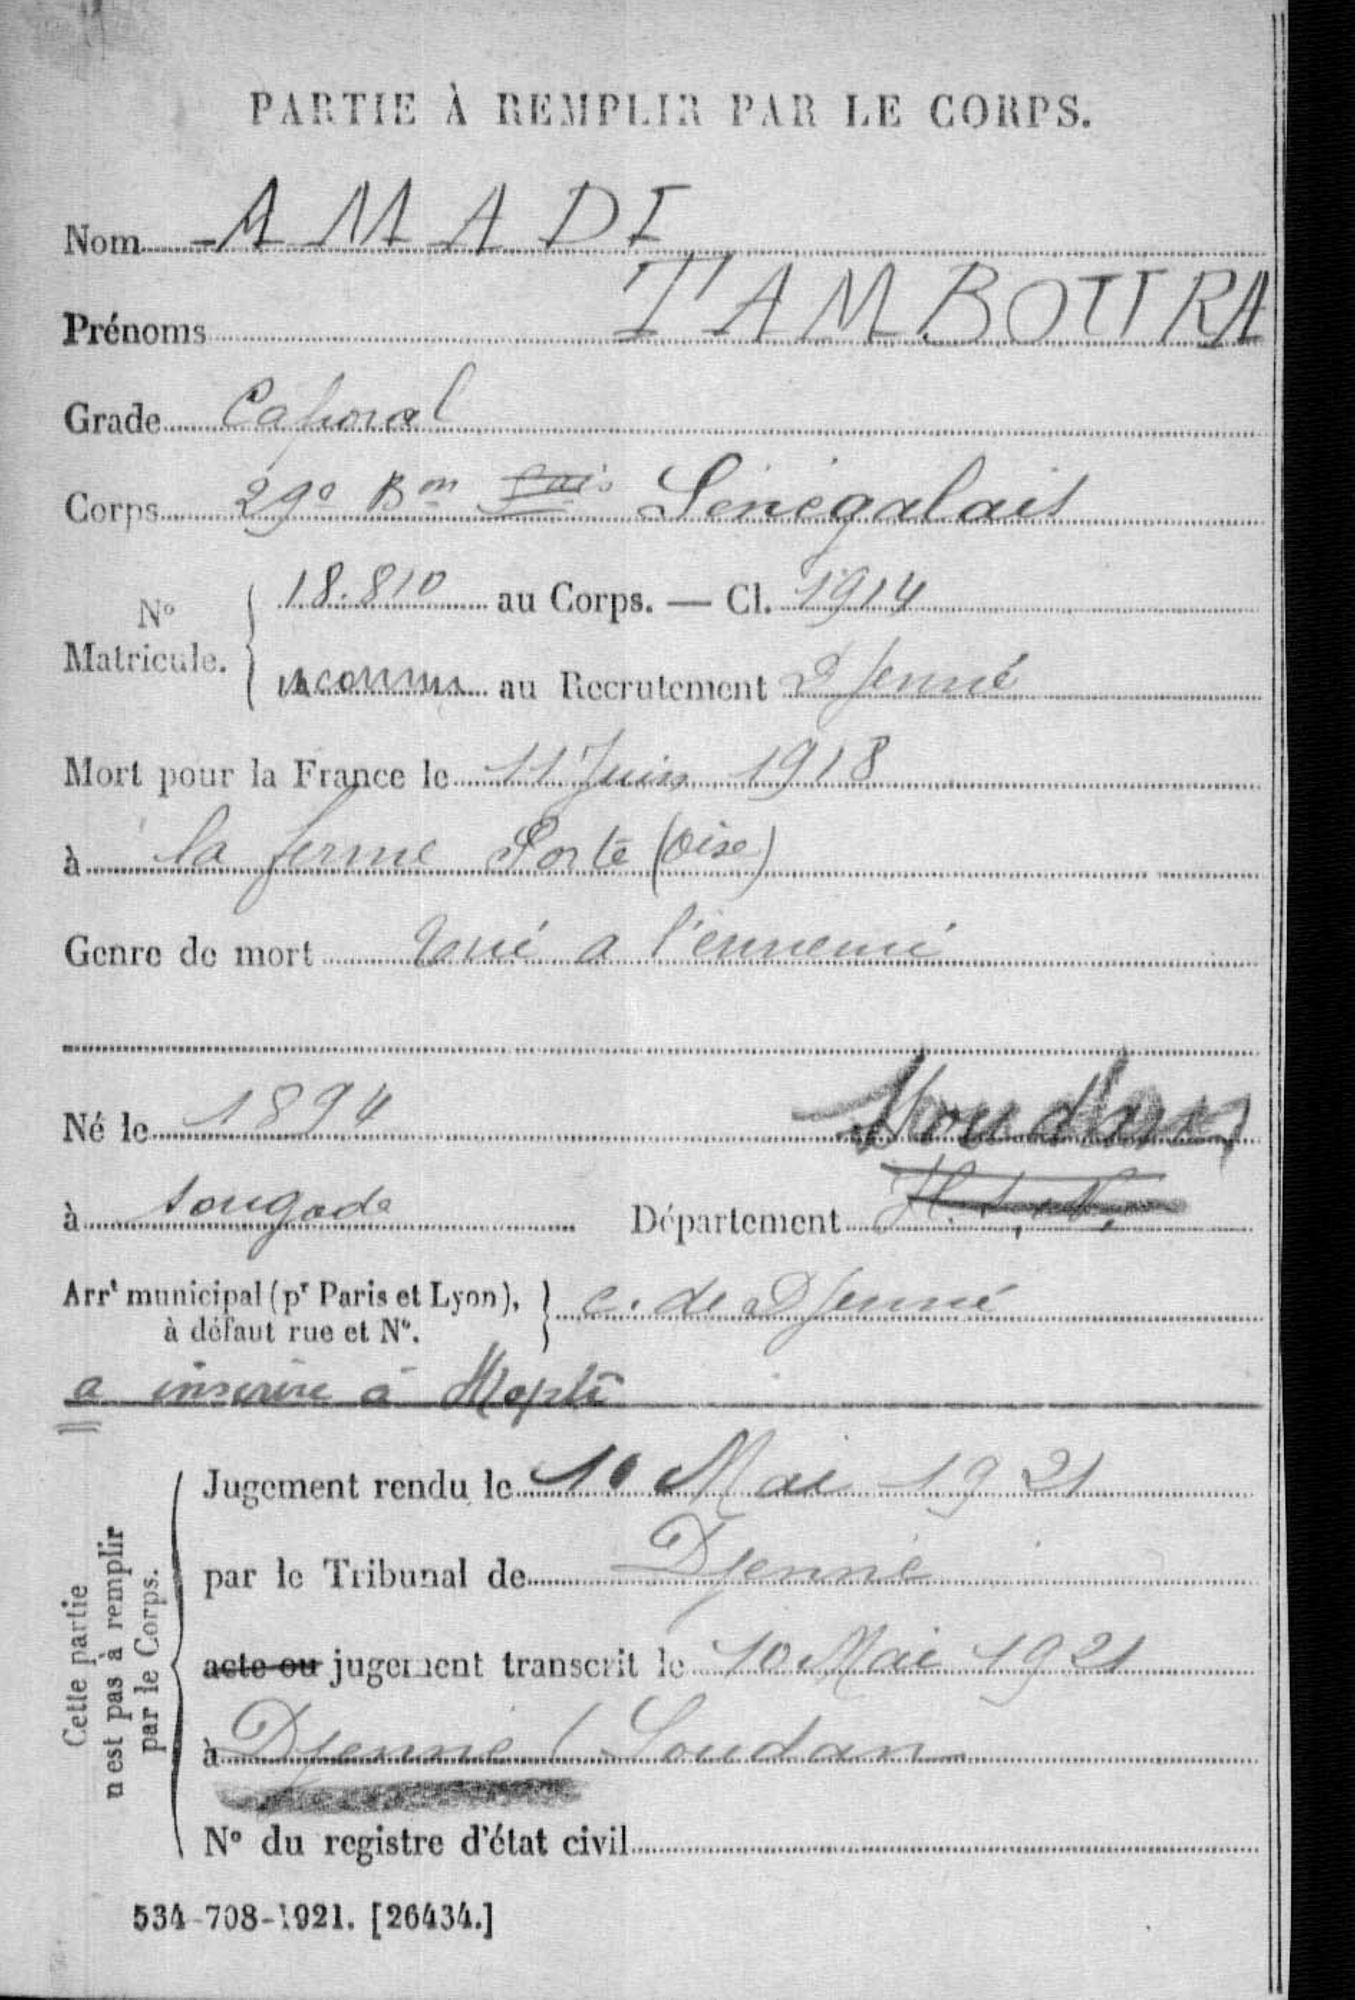 PARTIE À REMPLIR PAR LE CORPS.
Nom AMADI
Prénoms TAMBOURA
Grade Caporal
Corps 29e Bon Sénégalais
N° Matricule. 18.810 au Corps. — Cl. 1914
inconnu au Recrutement Djenné
Mort pour la France le 11 Juin 1918
à la ferme Porte (Oise)
Genre de mort Tué a l'ennemi
Né le 1894 Soudan
à Sougode Département H. S. N.
Arrt municipal (pr Paris et Lyon), à défaut rue et N°. c. de Djenné
a inscrire à Mopti
Cette partie n'est pas à remplir par le Corps.
Jugement rendu le 10 Mai 1921
par le Tribunal de Djenné
acte ou jugement transcrit le 10 Mai 1921
à Djenné (Soudan
N° du registre d'état civil
534-708-1921. [26434.]